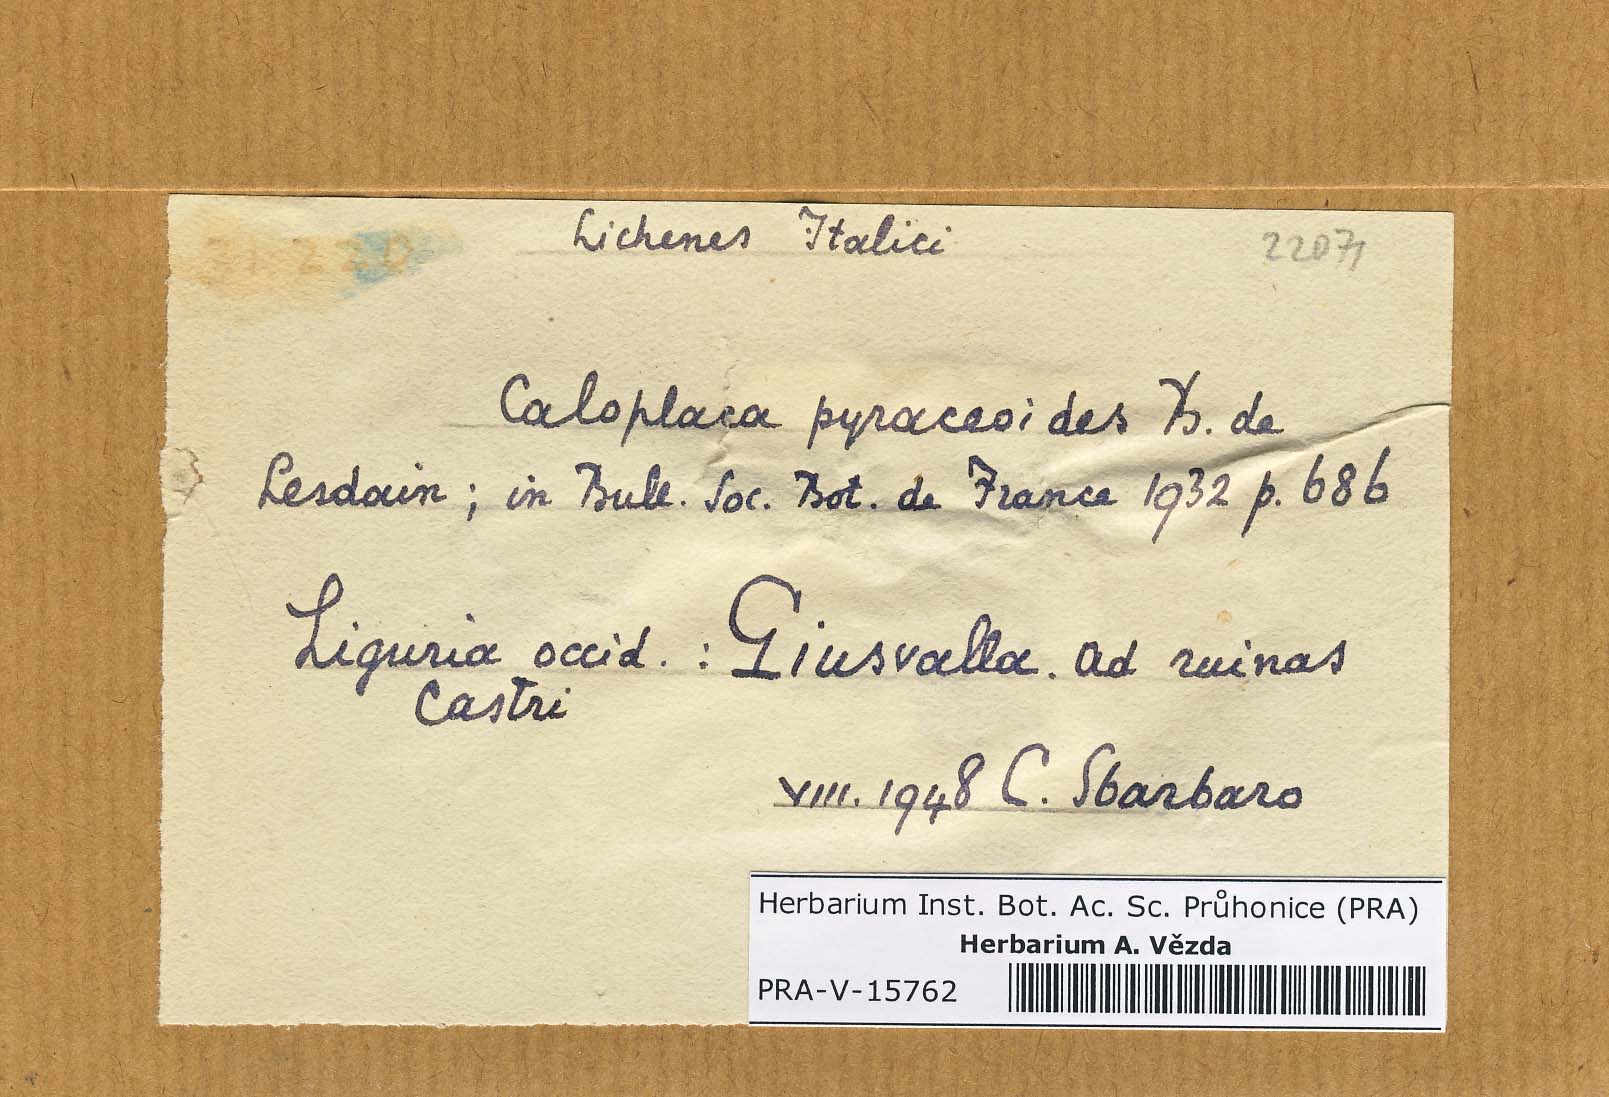 Lichenes Italici
22071
Caloplaca pyraceoides B. de
Lesdain ; in Bull. Soc. Bot. de France 1932 p. 686
Liguria occid. : Giusvalla. ad ruinas
Castri
VIII. 1948 C. Sbarbaro
Herbarium Inst. Bot. Ac. Sc. Průhonice (PRA)
Herbarium A. Vězda
PRA-V-15762